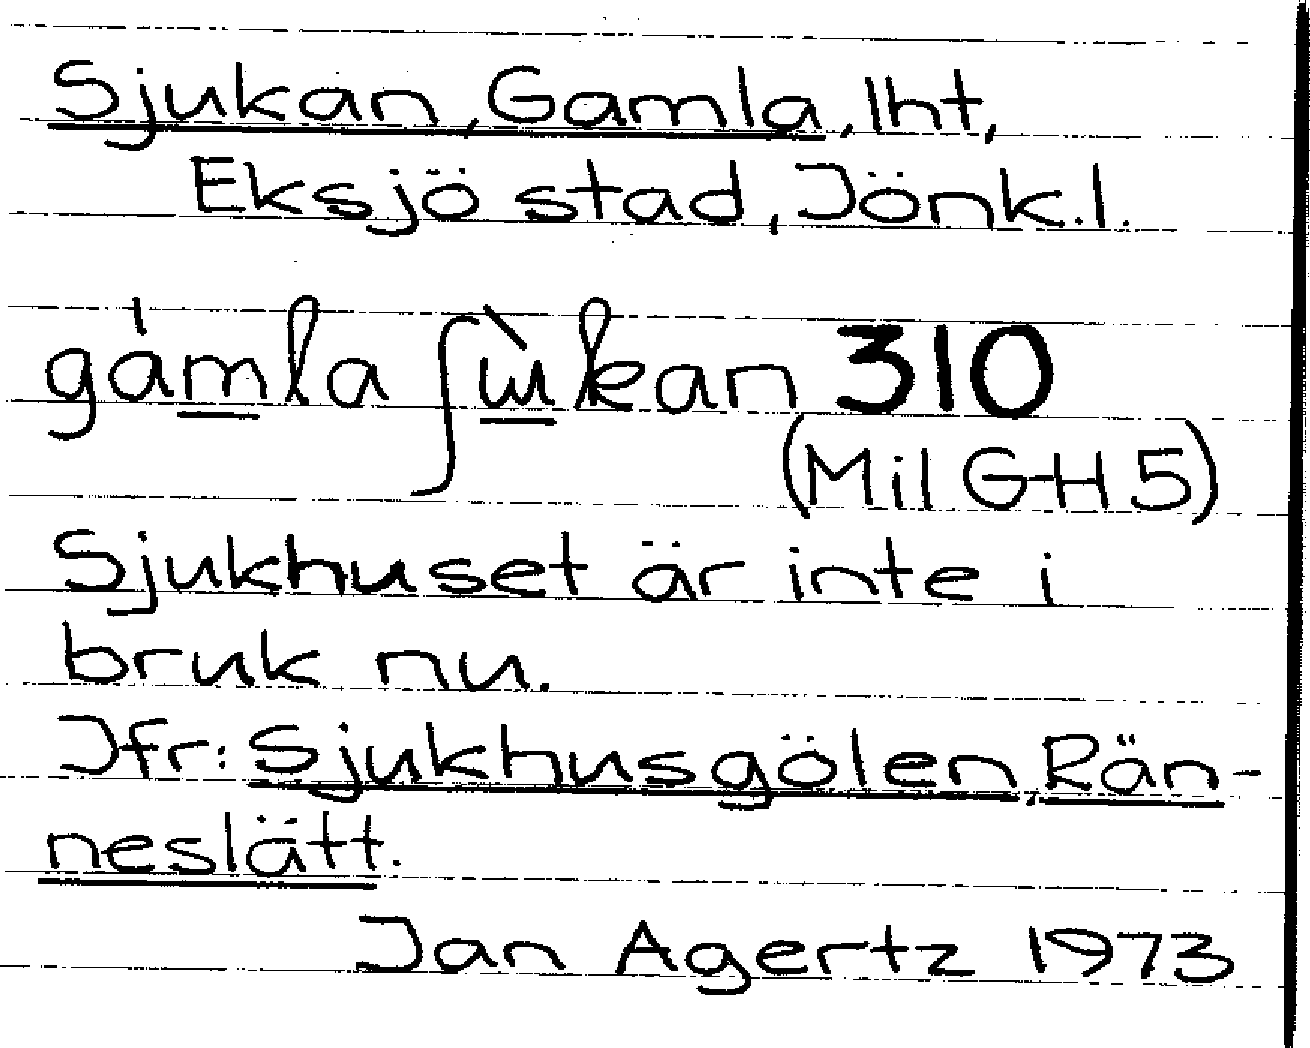 Sjukan, Gamla, lht,
Eksjö stad, Jönk.l.
gámla ʃɯ̀kan 310
(Mil G-H 5)
Sjukhuset är inte i
bruk nu.
Jfr: Sjukhusgölen, Rän-
neslätt.
Jan Agertz 1973